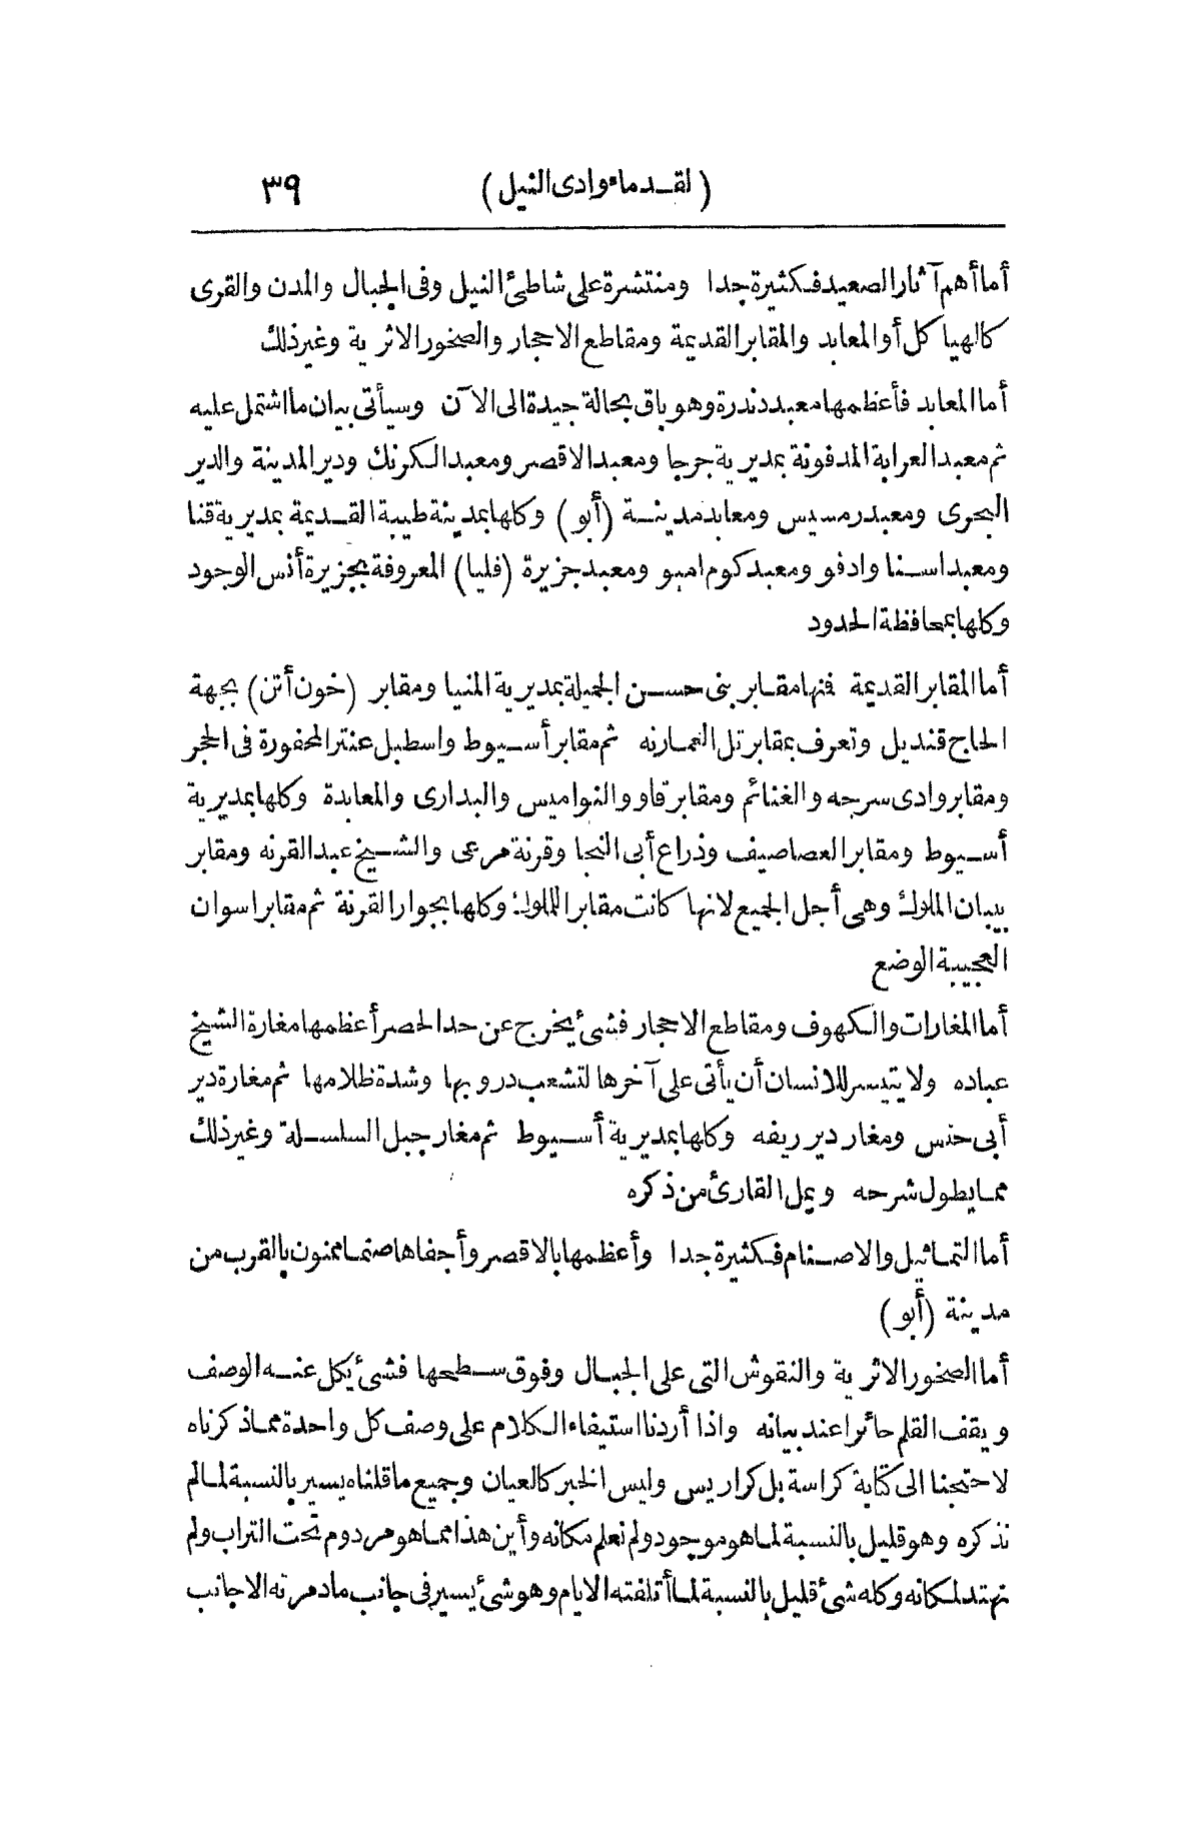 (لقدماء وادى النيل) ٣٩
أما أهم آثار الصعيد فكثيرة جدا ومنتشرة على شاطئ النيل وفى الجبال والمدن والقرى
كالهياكل أو المعابد والمقابر القديمة ومقاطع الاحجار والصخور الاثرية وغير ذلك
أما المعابد فأعظمها معبد دندرة وهو باق بحالة جيدة الى الآن وسيأتى بيان ما اشتمل عليه
ثم معبد العرابة المدفونة بمديرية جرجا ومعبد الاقصر ومعبد الكرنك ودير المدينة والدير
البحرى ومعبد رمسيس ومعابد مدينة (أبو) وكلها بمدينة طيبة القديمة بمديرية قنا
ومعبد اسنا وادفو ومعبد كوم امبو ومعبد جزيرة (فليا) المعروفة بجزيرة أنس الوجود
وكلها بمحافظة الحدود
أما المقابر القديمة فنها مقابر بنى حسن الجميلة بمديرية المنيا ومقابر (خون أتن) بجهة
الحاج قنديل وتعرف بمقابر تل العمارنه ثم مقابر أسيوط واسطبل عنتر المحفورة فى الحجر
ومقابر وادى سرجه والغنائم ومقابر قاو والنواميس والبدارى والمعابدة وكلها بمديرية
أسيوط ومقابر العصاصيف وذراع أبى النجا وقرنة مرعى والشيخ عبد القرنه ومقابر
بيبان الملوك وهى أجل الجميع لانها كانت مقابر الملوك وكلها بجوار القرنة ثم مقابر اسوان
العجيبة الوضع
أما المغارات والكهوف ومقاطع الاحجار فشئ يخرج عن حد الحصر أعظمها مغارة الشيخ
عباده ولا يتيسر للانسان أن يأتى على آخرها لتشعب دروبها وشدة ظلامها ثم مغارة دير
أبى حنس ومغار دير ريفه وكلها بمديرية أسيوط ثم مغار جبل السلسلة وغير ذلك
مما يطول شرحه ويمل القارئ من ذكره
أما التماثيل والاصنام فكثيرة جدا وأعظمها بالاقصر وأجفاها صنما ممنون بالقرب من
مدينة (أبو)
أما الصخور الاثرية والنقوش التى على الجبال وفوق سطحها فشئ يكل عنه الوصف
ويقف القلم حائرا عند بيانه واذا أردنا استيفاء الكلام على وصف كل واحدة مما ذكرناه
لاحتجنا الى كتابة كراسة بل كراريس وليس الخبر كالعيان وجميع ما قلناه يسير بالنسبة لما لم
نذكره وهو قليل بالنسبة لما هو موجود ولم نعلم مكانه وأين هذا مما هو مردوم تحت التراب ولم
نهتد لمكانه وكله شئ قليل بالنسبة لما أتلفته الايام وهو شئ يسير فى جانب ما دمرته الاجانب